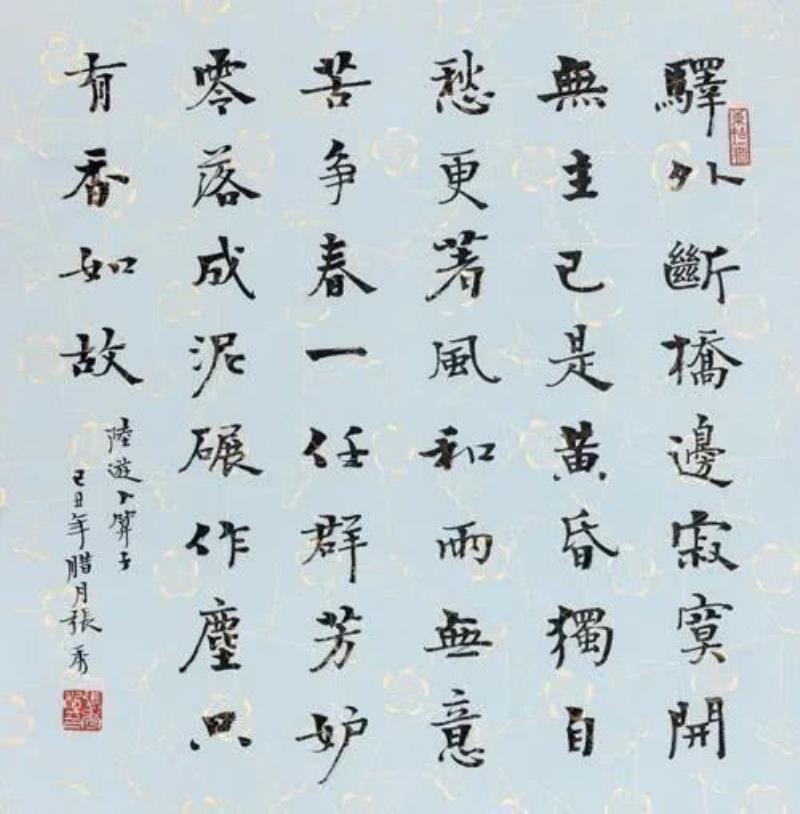 驛外斷橋邊寂寞開
無主已是黃昏獨自
愁更著風和雨無意
苦爭春一任群芳妒
零落成泥碾作塵只
有香如故
陸遊卜算子
己丑年腊月張秀